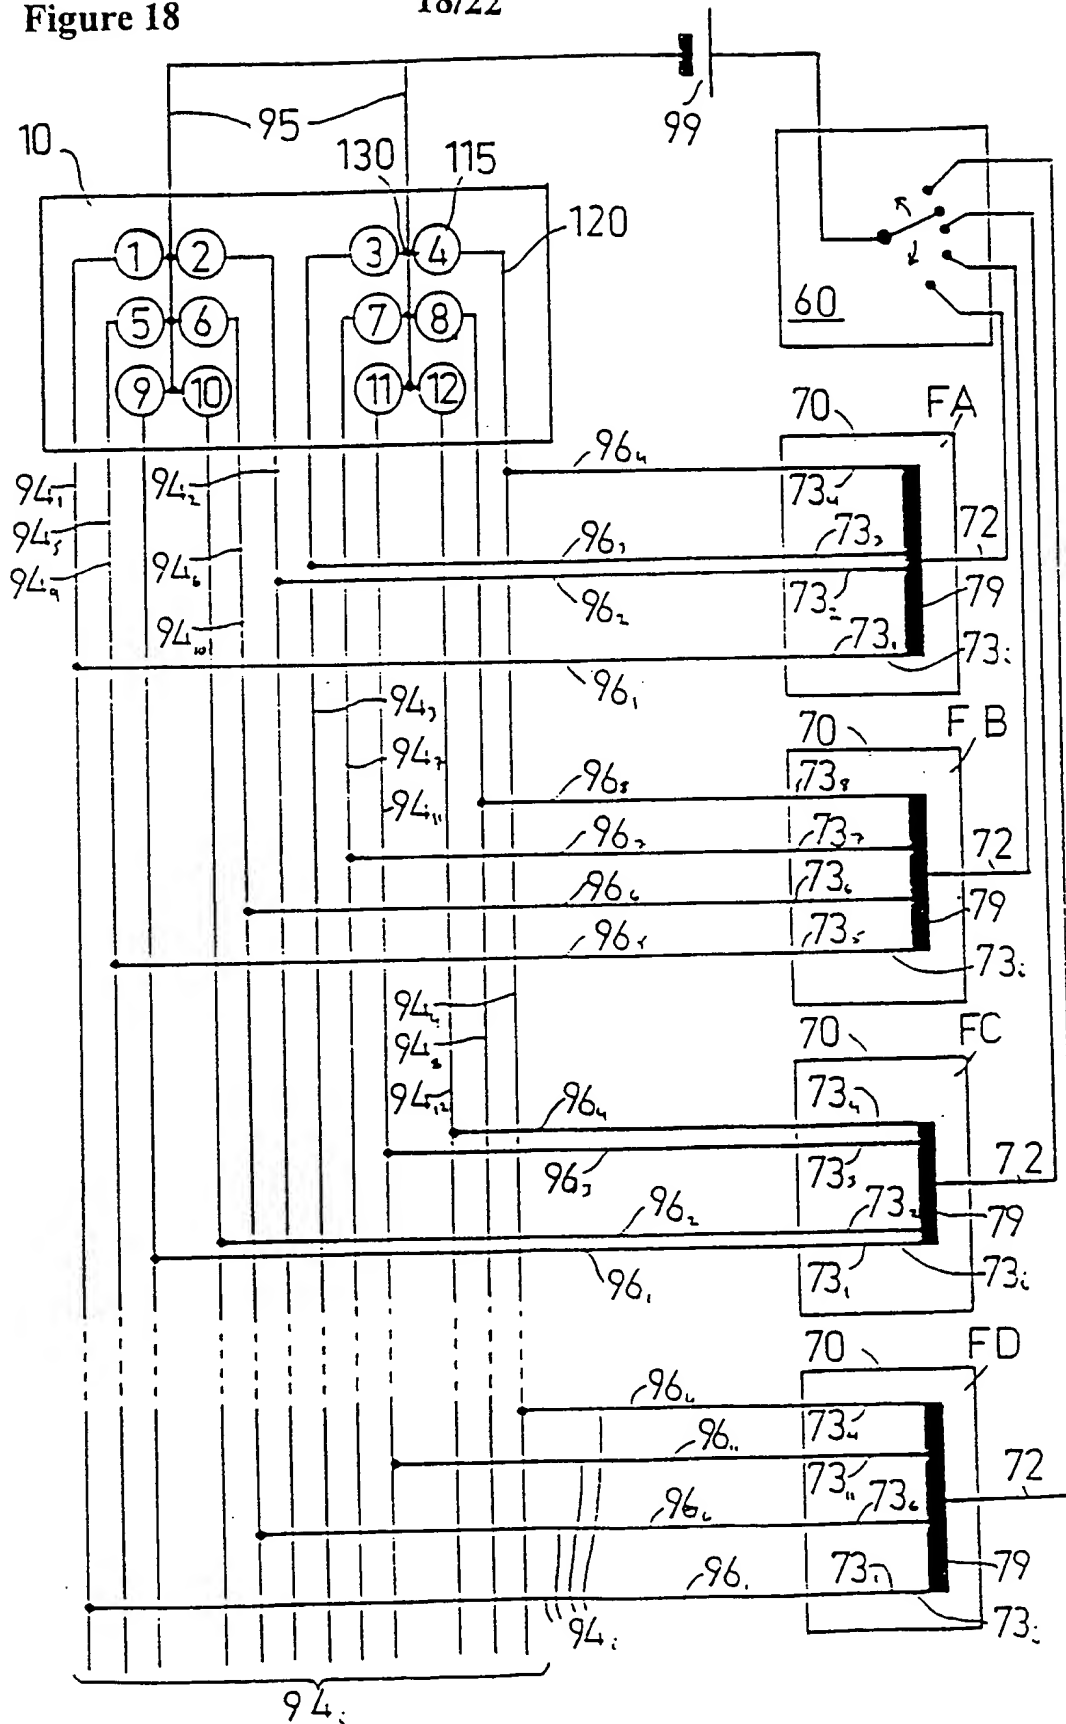 Figure 18
18/22
99
95
10
130 115
120
1 2 3 4
5 6 7 8
9 10 11 12
60
70 FA
94₁ 94₂ 96₄ 73₄
94₅ 96₃ 73₃ 72
94₉ 94₆ 96₂ 73₂ 79
94₁₀ 73₁ 73i
96₁
94₃ 70 FB
94₇ 96₈ 73₈
94₁₁ 96₇ 73₇ 72
96₆ 73₆ 79
96₅ 73₅ 73i
94₄ 70 FC
94₈
94₁₂ 96₄ 73₄
96₃ 73₃ 72
96₂ 73₂ 79
96₁ 73₁ 73i
70 FD
96₄ 73₄
96₁₁ 73₁₁ 72
96₆ 73₆
96₁ 73₁ 79
94i 73i
94i